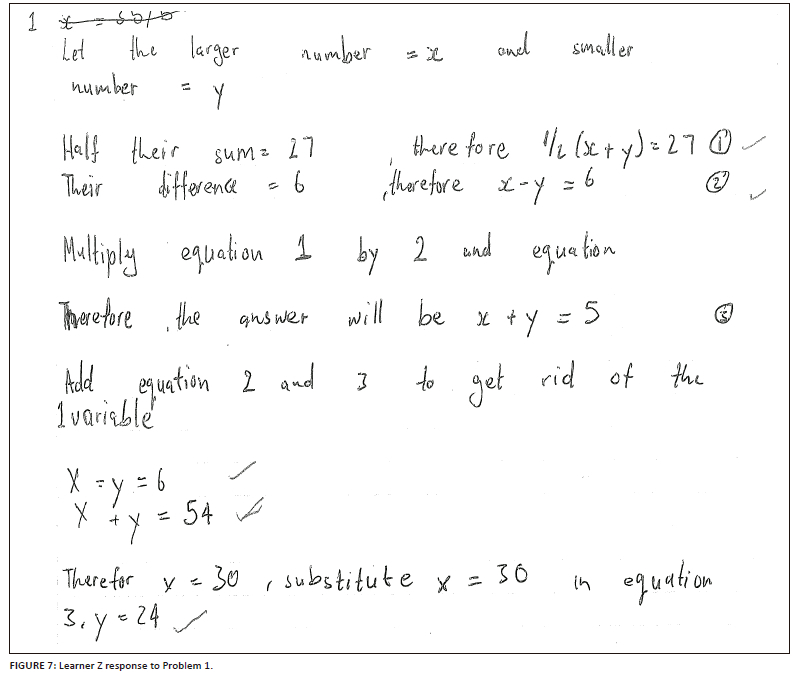 1
Let the larger number = x and smaller
number = y
Half their sum = 27 , therefore 1/2 (x + y) = 27 ①
Their difference = 6 , therefore x - y = 6 ②
Multiply equation 1 by 2 and equation
Therefore , the answer will be x + y = 5 ③
Add equation 2 and 3 to get rid of the
1 variable
x - y = 6
x + y = 54
Therefor x = 30 , substitute x = 30 in equation
3, y = 24
FIGURE 7: Learner Z response to Problem 1.